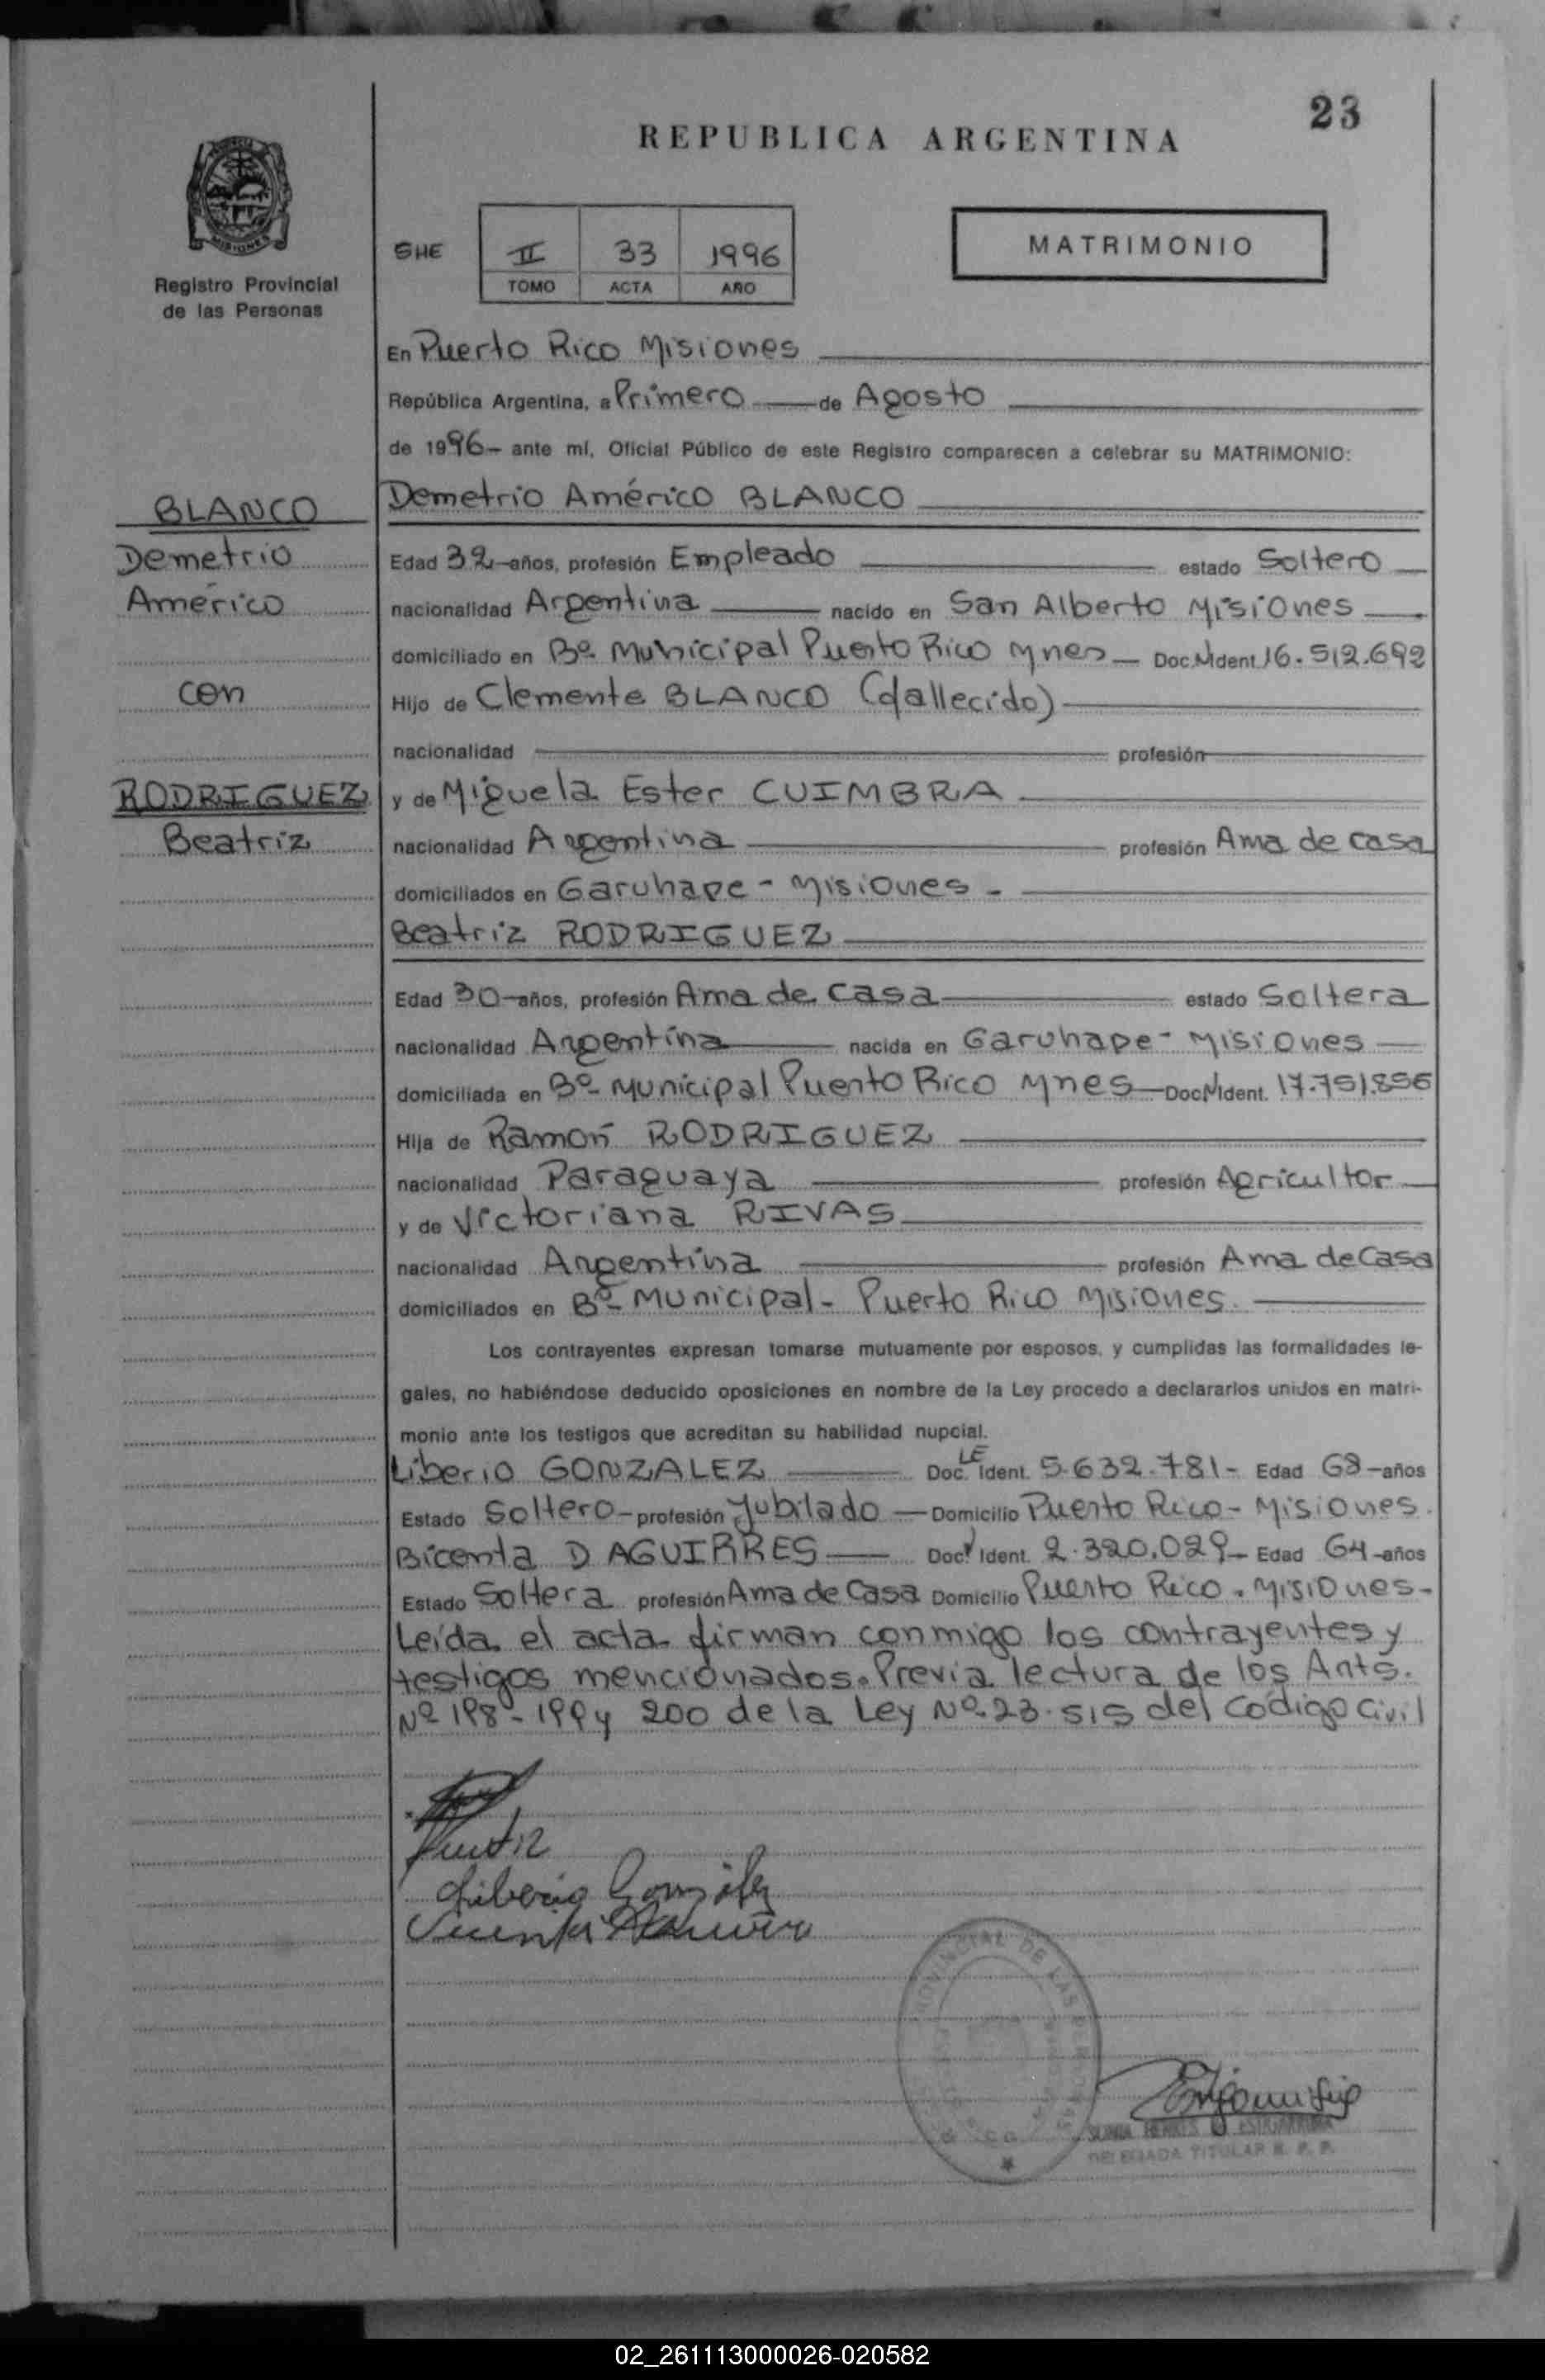 23
REPUBLICA ARGENTINA
SHE
II 33 1996
TOMO ACTA AÑO
MATRIMONIO
Registro Provincial
de las Personas
En Puerto Rico Misiones
República Argentina, a Primero de Agosto
de 1996- ante mí, Oficial Público de este Registro comparecen a celebrar su MATRIMONIO:
BLANCO
Demetrio
Américo
con
RODRIGUEZ
Beatriz
Demetrio Américo BLANCO
Edad 32-años, profesión Empleado estado Soltero
nacionalidad Argentina nacido en San Alberto Misiones
domiciliado en Bº Municipal Puerto Rico Mnes Doc.N Ident. 16.512.692
Hijo de Clemente BLANCO (fallecido)
nacionalidad profesión
y de Miguela Ester CUIMBRA
nacionalidad Argentina profesión Ama de casa
domiciliados en Garuhape - Misiones -
Beatriz RODRIGUEZ
Edad 30-años, profesión Ama de casa estado Soltera
nacionalidad Argentina nacida en Garuhape - Misiones
domiciliada en Bº Municipal Puerto Rico Mnes Doc.N Ident. 17.751.856
Hija de Ramón RODRIGUEZ
nacionalidad Paraguaya profesión Agricultor
y de Victoriana RIVAS
nacionalidad Argentina profesión Ama de Casa
domiciliados en Bº Municipal - Puerto Rico Misiones.
Los contrayentes expresan tomarse mutuamente por esposos, y cumplidas las formalidades le-
gales, no habiéndose deducido oposiciones en nombre de la Ley procedo a declararlos unidos en matri-
monio ante los testigos que acreditan su habilidad nupcial.
Liberio GONZALEZ Doc. LE Ident. 5.632.781- Edad 68-años
Estado Soltero- profesión Jubilado - Domicilio Puerto Rico - Misiones.
Bicenta D AGUIRRES Doc. Ident. 2.320.029- Edad 64-años
Estado Soltera profesión Ama de Casa Domicilio Puerto Rico - Misiones-
Leída el acta firman conmigo los contrayentes y
testigos mencionados. Previa lectura de los Arts.
Nº 198 - 199 y 200 de la Ley Nº 23.515 del código civil
Liberio González
Vicenta
DELEGADA TITULAR R. P. P.
02_261113000026-020582